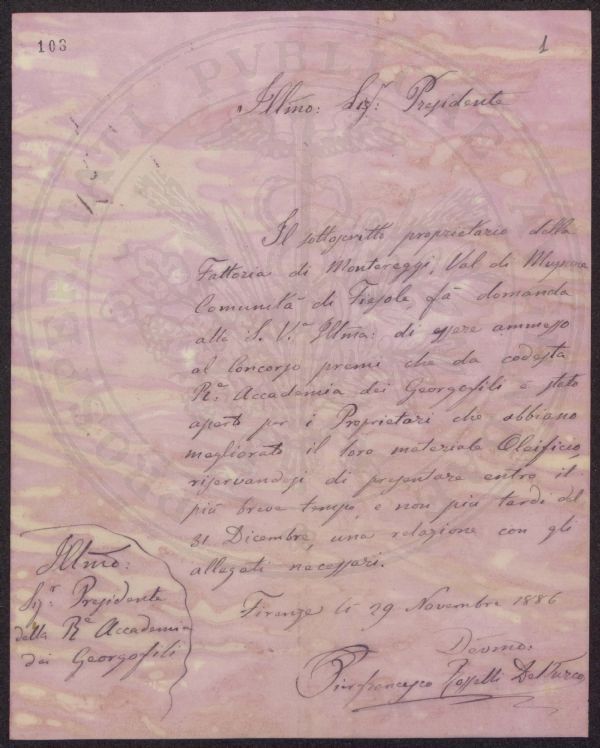 103
1
Illmo: Sigr. Presidente
Il sottoscritto proprietario della
Fattoria di Montereggi, Val di Mugnone
Comunità di Fiesole, fà domanda
alla S. V.a Illma: di essere ammesso
al Concorso premi che da codesta
Ra. Accademia dei Georgofili è stato
aperto per i Proprietari che abbiano
megliorato il loro materiale Oleificio,
riservandosi di presentare entro il
più breve tempo, e non più tardi del
31 Dicembre, una relazione con gli
allegati necessari.
Firenze li 29 Novembre 1886
Devmo:
Pierfrancesco Rosselli Del Turco
Illmo:
Sigr. Presidente
della Ra. Accademia
dei Georgofili
PROSPERITATI PVBLICAE